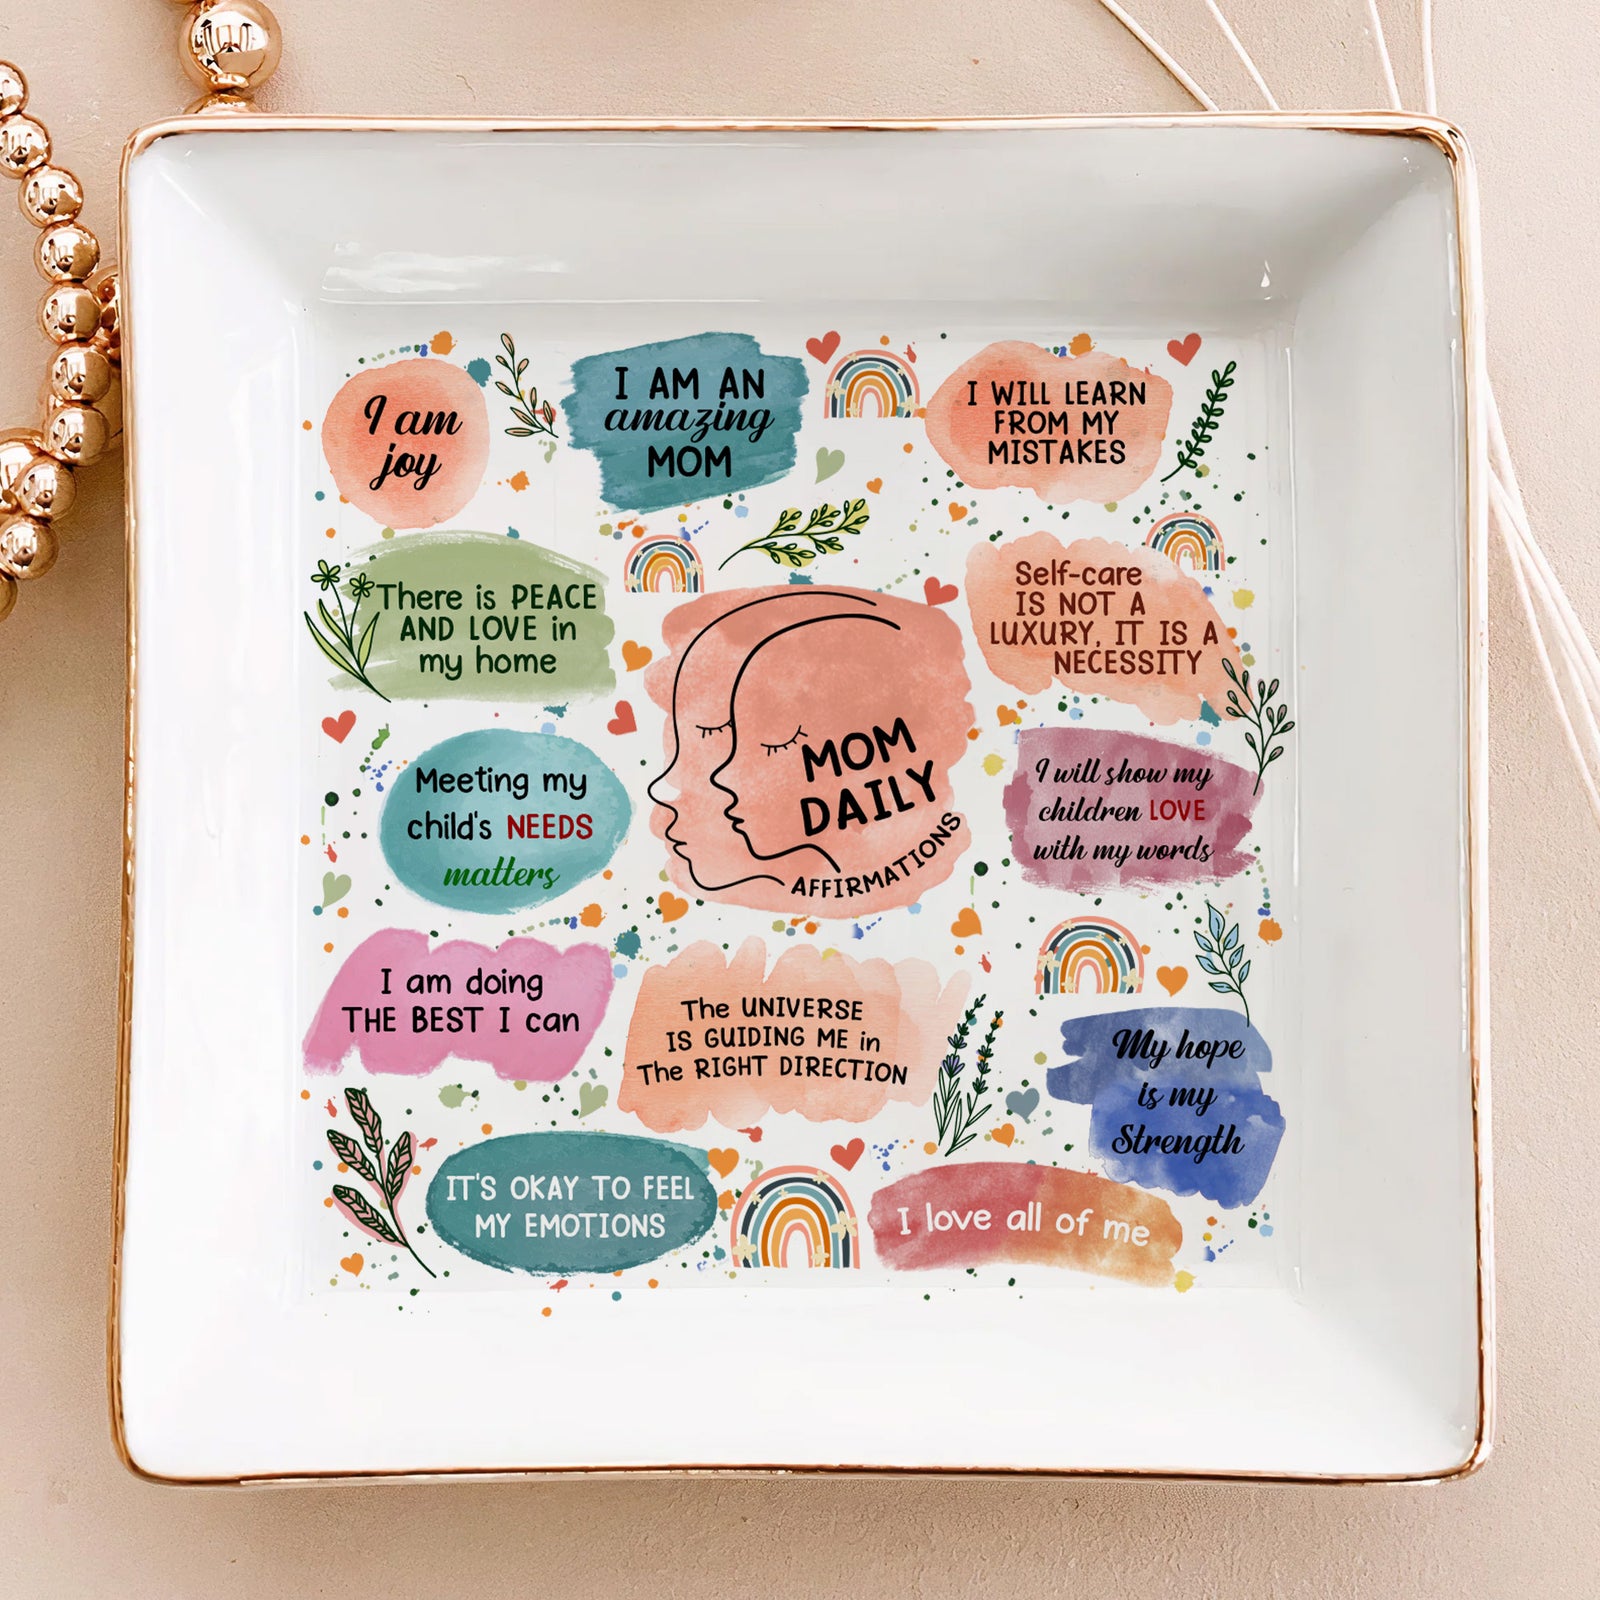 I am
joy
I AM AN
amazing
MOM
I WILL LEARN
FROM MY
MISTAKES
There is PEACE
AND LOVE in
my home
Self-care
IS NOT A
LUXURY, IT IS A
NECESSITY
MOM
DAILY
AFFIRMATIONS
Meeting my
child's NEEDS
matters
I will show my
children LOVE
with my words
I am doing
THE BEST I can
The UNIVERSE
IS GUIDING ME in
The RIGHT DIRECTION
My hope
is my
Strength
IT'S OKAY TO FEEL
MY EMOTIONS
I love all of me